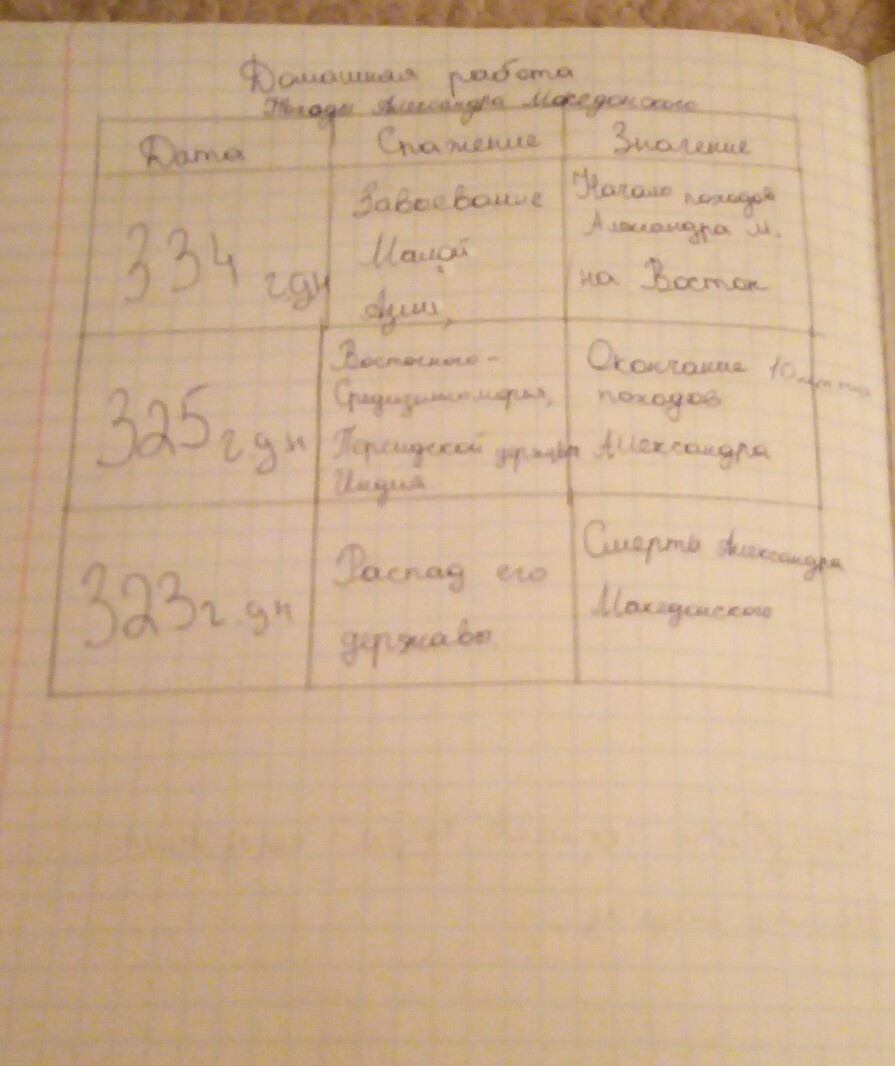 Домашняя работа
Походы Александра Македонского
Дата Сражение Значение
334 г.дн
Завоевание
Малой
Азии,
Начало походов
Александра М.
на Восток
325 г. дн
Восточного-
Средиземноморья,
Персидской державы
Индия
Окончание 10
походов
Александра
323 г. дн
Распад его
державы.
Смерть Александра
Македонского